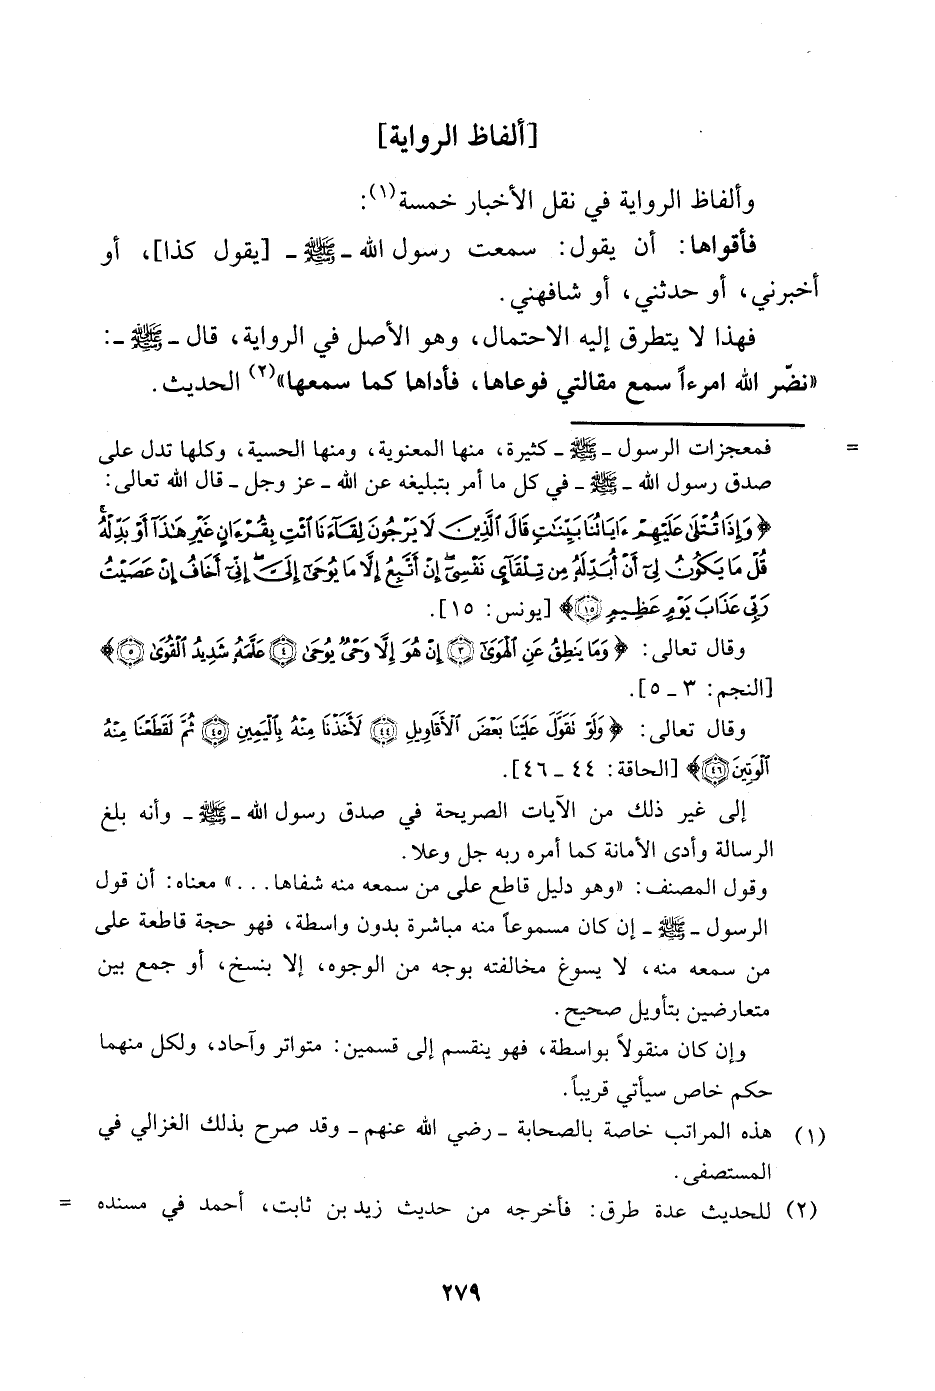 [ألفاظ الرواية]
وألفاظ الرواية في نقل الأخبار خمسة(١):
فأقواها: أن يقول: سمعت رسول الله ـ ﷺ ـ [يقول كذا]، أو
أخبرني، أو حدثني، أو شافهني.
فهذا لا يتطرق إليه الاحتمال، وهو الأصل في الرواية، قال ـ ﷺ ـ:
«نضّر الله امرءاً سمع مقالتي فوعاها، فأداها كما سمعها»(٢) الحديث.
= فمعجزات الرسول ـ ﷺ ـ كثيرة، منها المعنوية، ومنها الحسية، وكلها تدل على
صدق رسول الله ـ ﷺ ـ في كل ما أمر بتبليغه عن الله ـ عز وجل ـ قال الله تعالى:
﴿ وَإِذَا تُتْلَىٰ عَلَيْهِمْ ءَايَاتُنَا بَيِّنَٰتٍ قَالَ الَّذِينَ لَا يَرْجُونَ لِقَآءَنَا ائْتِ بِقُرْءَانٍ غَيْرِ هَٰذَآ أَوْ بَدِّلْهُ ۚ
قُلْ مَا يَكُونُ لِيٓ أَنْ أُبَدِّلَهُ مِن تِلْقَآيِٕ نَفْسِيٓ ۖ إِنْ أَتَّبِعُ إِلَّا مَا يُوحَىٰٓ إِلَيَّ ۖ إِنِّيٓ أَخَافُ إِنْ عَصَيْتُ
رَبِّي عَذَابَ يَوْمٍ عَظِيمٍ (١٥) ﴾ [يونس: ١٥].
وقال تعالى: ﴿ وَمَا يَنطِقُ عَنِ الْهَوَىٰٓ (٣) إِنْ هُوَ إِلَّا وَحْيٌ يُوحَىٰ (٤) عَلَّمَهُ شَدِيدُ الْقُوَىٰ (٥) ﴾
[النجم: ٣ ـ ٥].
وقال تعالى: ﴿ وَلَوْ تَقَوَّلَ عَلَيْنَا بَعْضَ الْأَقَاوِيلِ (٤٤) لَأَخَذْنَا مِنْهُ بِالْيَمِينِ (٤٥) ثُمَّ لَقَطَعْنَا مِنْهُ
الْوَتِينَ (٤٦) ﴾ [الحاقة: ٤٤ ـ ٤٦].
إلى غير ذلك من الآيات الصريحة في صدق رسول الله ـ ﷺ ـ وأنه بلغ
الرسالة وأدى الأمانة كما أمره ربه جل وعلا.
وقول المصنف: «وهو دليل قاطع على من سمعه منه شفاها...» معناه: أن قول
الرسول ـ ﷺ ـ إن كان مسموعاً منه مباشرة بدون واسطة، فهو حجة قاطعة على
من سمعه منه، لا يسوغ مخالفته بوجه من الوجوه، إلا بنسخ، أو جمع بين
متعارضين بتأويل صحيح.
وإن كان منقولاً بواسطة، فهو ينقسم إلى قسمين: متواتر وآحاد، ولكل منهما
حكم خاص سيأتي قريباً.
(١) هذه المراتب خاصة بالصحابة ـ رضي الله عنهم ـ وقد صرح بذلك الغزالي في
المستصفى.
(٢) للحديث عدة طرق: فأخرجه من حديث زيد بن ثابت، أحمد في مسنده =
٢٧٩